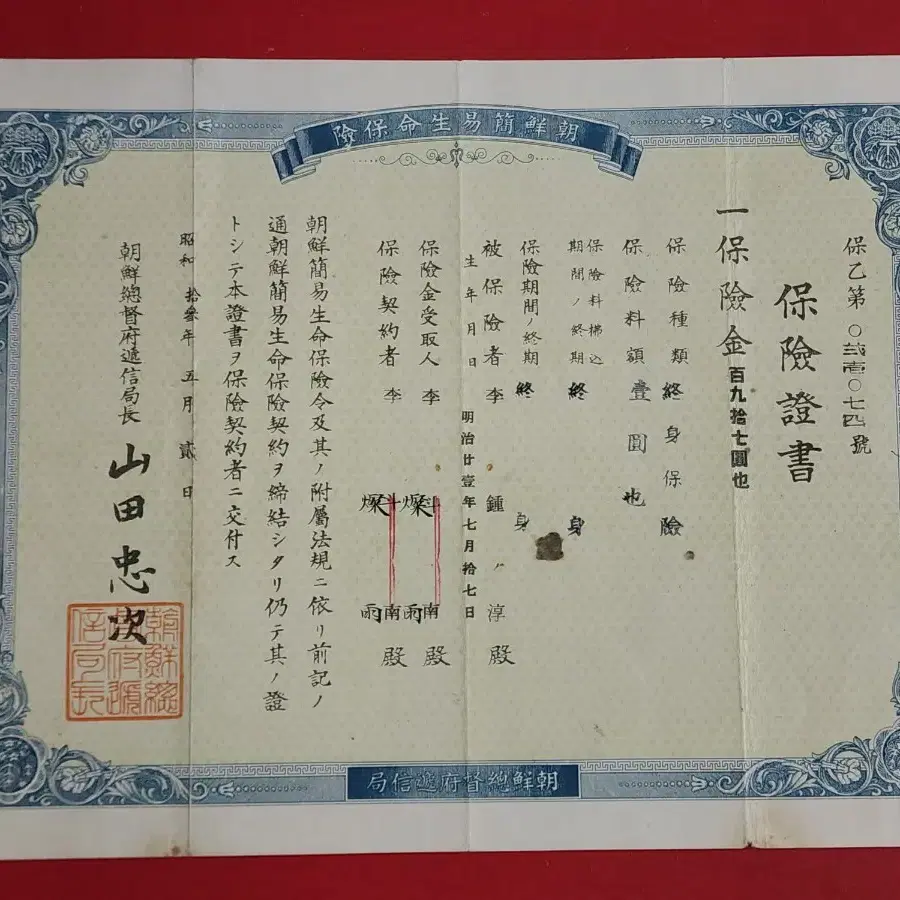 朝鮮簡易生命保險
保乙第〇貳壹〇七四號
保險證書
一保險金百九拾七圓也
保險種類 終身保險
保險料額 壹圓也
保險料拂込期間ノ終期 終身
保險期間ノ終期 終身
被保險者 李鍾淳殿
生年月日 明治廿壹年七月拾七日
保險金受取人 李斗南殿
燦雨
保險契約者 李斗南殿
燦雨
朝鮮簡易生命保險令及其ノ附屬法規ニ依リ前記ノ
通朝鮮簡易生命保險契約ヲ締結シタリ仍テ其ノ證
トシテ本證書ヲ保險契約者ニ交付ス
昭和拾參年五月貳日
朝鮮總督府遞信局長 山田忠次
朝鮮總督府遞信局長
朝鮮總督府遞信局